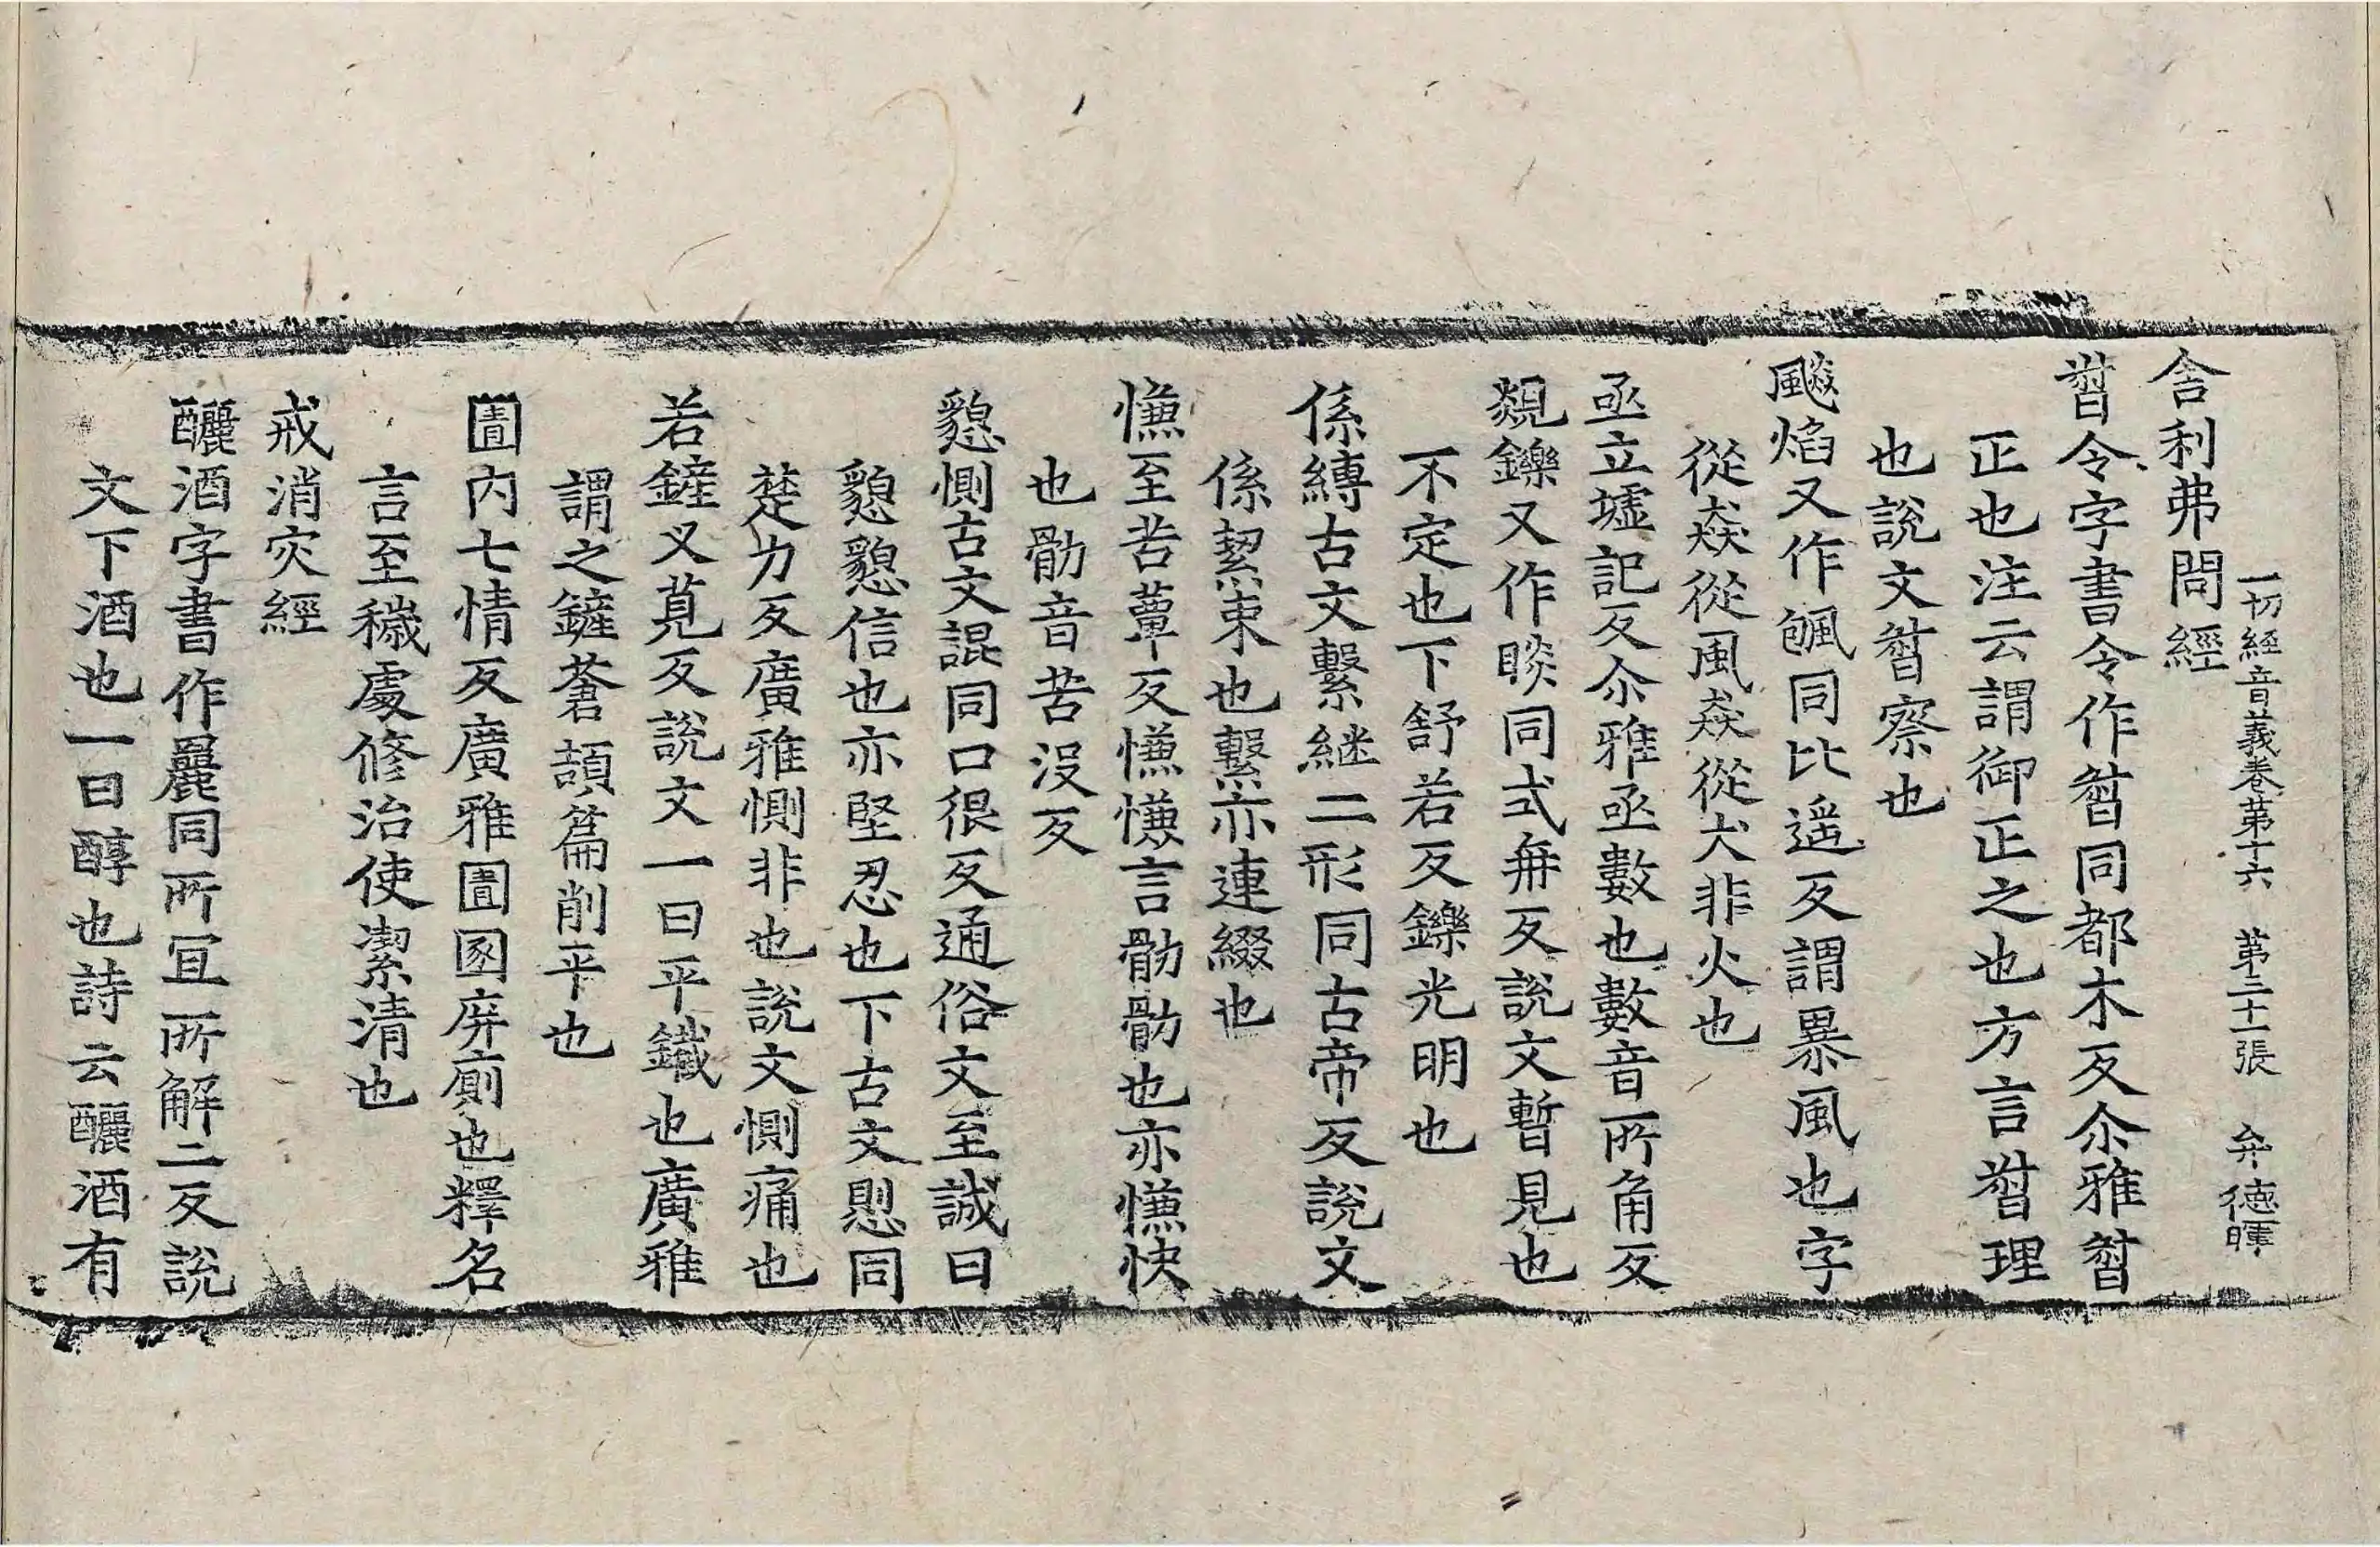 一切經音義卷第十六　第二十一張　弁德暉
舍利弗問經
䇐令字書令作䇐同都木反尒雅䇐
正也注云謂御正之也方言䇐理
也說文䇐察也
飈焰又作颮同比遥反謂暴風也字
從猋從風猋從犬非火也
亟立墟記反尒雅亟數也數音所角反
覢鑠又作睒同式冉反說文暫見也
不定也下舒若反鑠光明也
係縛古文繫継二形同古帝反說文
係絜束也繫亦連綴也
憔至苦蕇反憔憔言勩勩也亦憔快
也勩音苦沒反
懇惻古文諰同口很反通俗文至誠曰
懇懇信也亦堅忍也下古文恖同
楚力反廣雅惻非也說文惻痛也
若鏟叉莧反說文一曰平鐵也廣雅
謂之鏟蒼頡篇削平也
圊内七情反廣雅圊圂庰廁也釋名
言至穢處修治使潔清也
戒消灾經
釃酒字書作䴡同所冝所解二反說
文下酒也一曰醇也詩云釃酒有